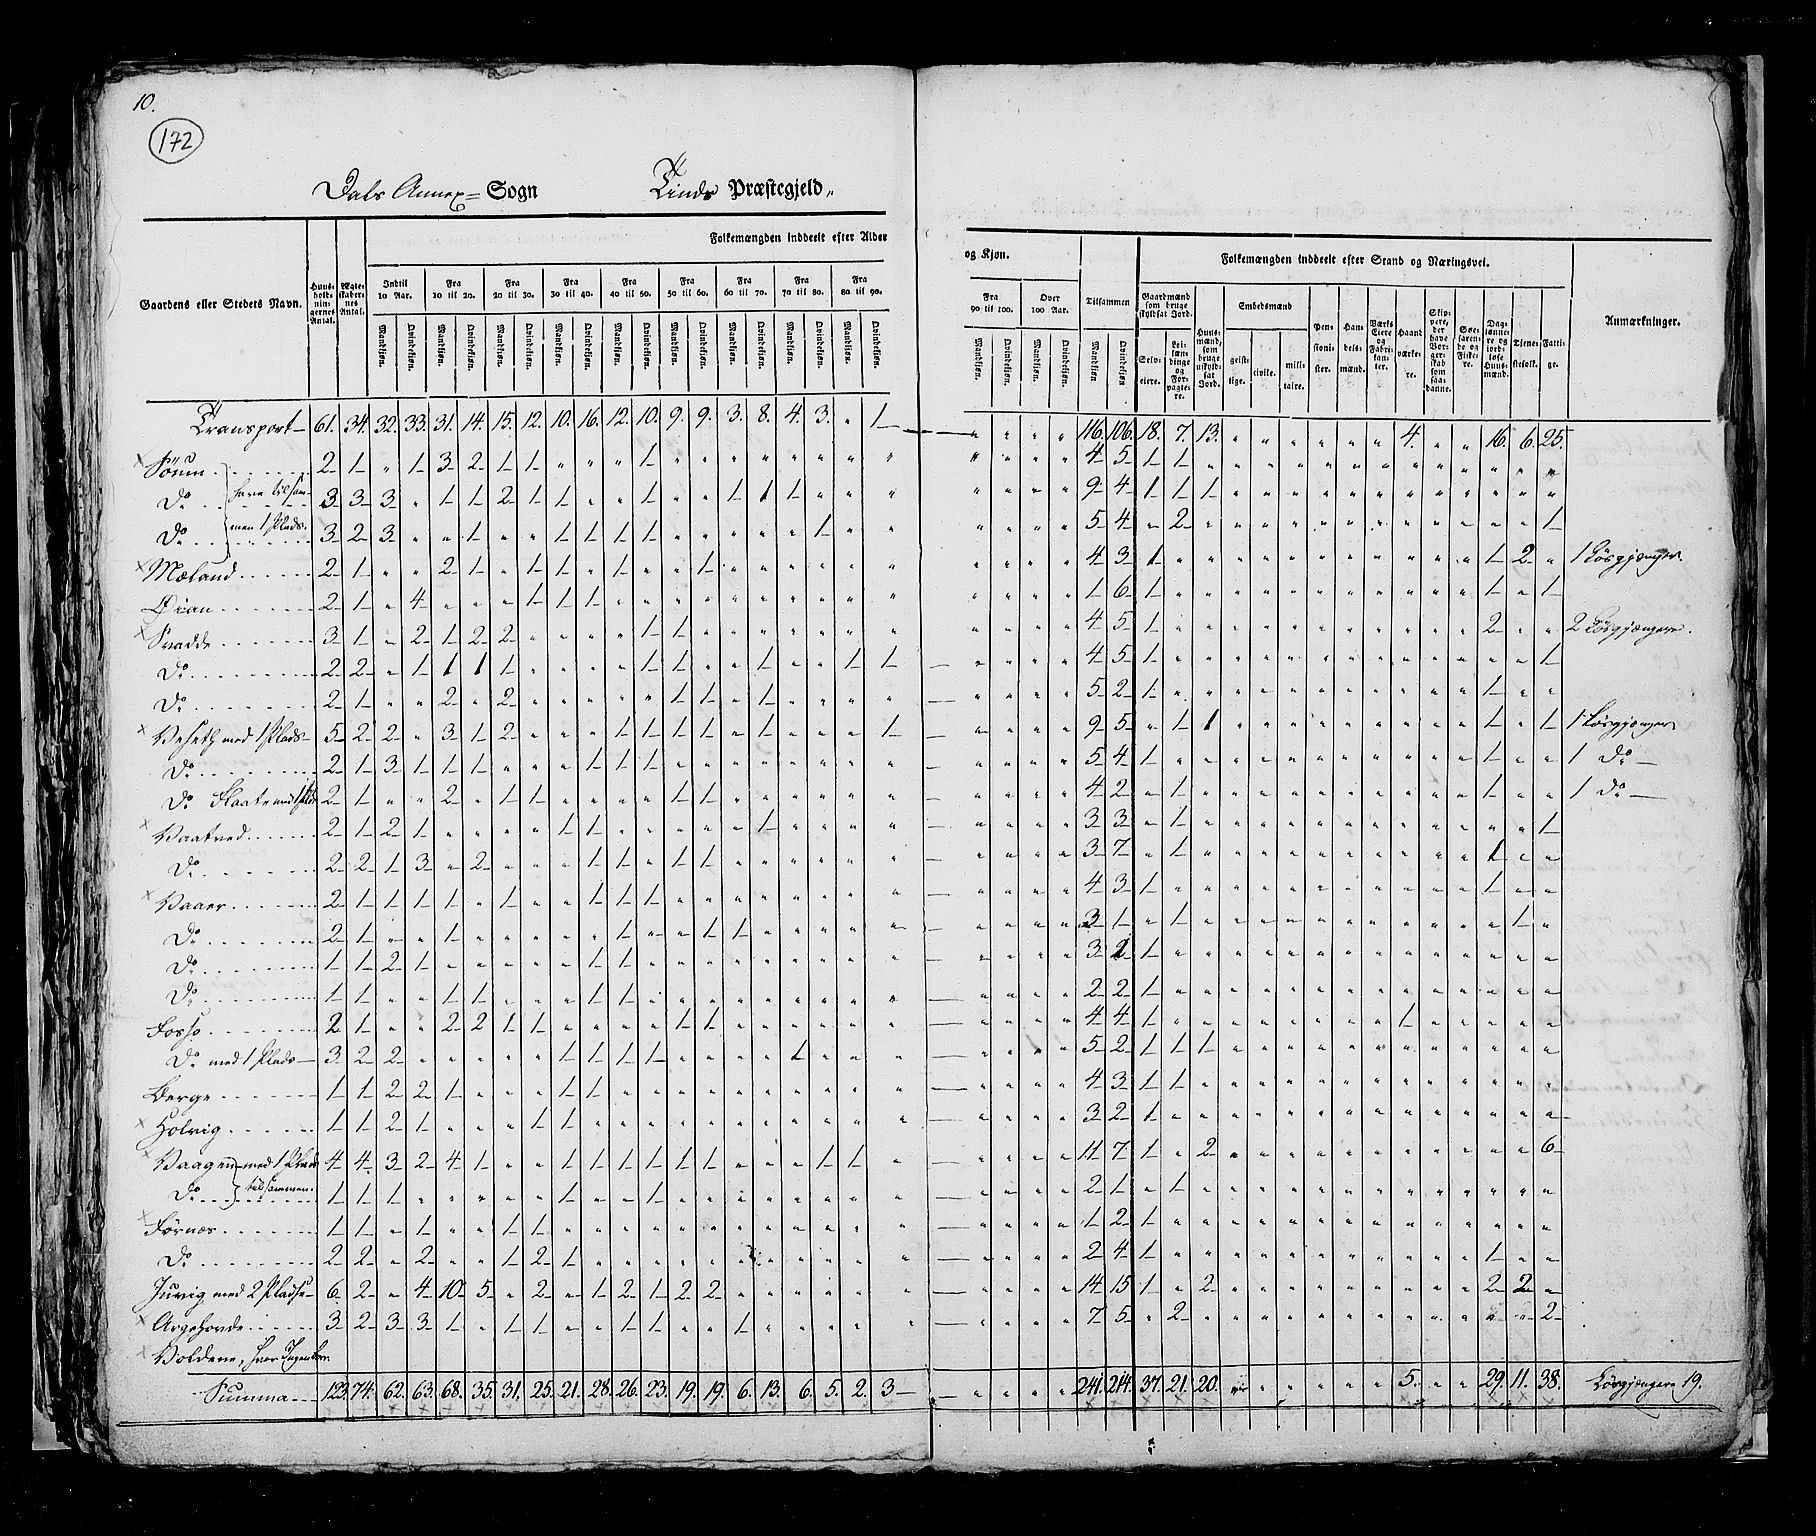 10.
172
Dals Annex= Sogn Tinds Præstegjeld„
Folkemængden inddeelt efter Alder og Kjøn.
Folkemængden inddeelt efter Stand og Næringsvei.
Gaardens eller Stedets Navn.
Huus-holdnin-gernes Antal.
Ægte-skaber-nes Antal.
Indtil 10 Aar.
Fra 10 til 20.
Fra 20 til 30.
Fra 30 til 40.
Fra 40 til 50.
Fra 50 til 60.
Fra 60 til 70.
Fra 70 til 80.
Fra 80 til 90.
Fra 90 til 100.
Over 100 Aar.
Tilsammen
Mandkjøn. Qvindekjøn.
Gaardmænd som bruge skyldsat Jord.
Selv-eiere.
Lei-læn-dinge og For-pagte-re.
Huus-mænd, som bruge uskyld-sat Jord.
Embedsmænd
geist-lige.
civille.
mili-taire.
Pen-sioni-ster.
Han-dels-mænd.
Værks Eiere og Fabri-kan-ter.
Haand værke-re.
Skip-pere, der have Bor-ger-skab som saa-danne.
Søe-farende og Fiske-re.
Dag-lønne-re og jord-løse Huus-mænd.
Tjene-stefolk.
Fatti-ge.
Anmærkninger.
Transport 61. 34. 32. 33. 31. 14. 15. 12. 10. 16. 12. 10. 9. 9. 3. 8. 4. 3. „ 1 „ „ „ „ 116. 106. 18. 7. 13. „ „ „ „ „ „ 4. „ „ 16. 6. 25.
Sørum 2 1 „ 1 3 2 1 1 „ „ „ 1 4 5 1 1
Do have tilsam- 3 3 3 „ 1 1 2 1 1 „ „ 1 „ „ 1 1 1 9 4 1 1 1
Do men 1 Plads. 3 2 3 „ „ 1 „ „ 1 1 1 1 „ „ „ „ „ 1 5 4 „ 2 1
Mæland 2 1 „ „ 2 1 „ 1 1 „ 1 „ „ 1 4 3 1 1 2 „ 1 Løsgjænger.
Øian 2 1 „ 4 „ „ „ 1 1 1 1 6 1 1 „ 1
Svadde 3 1 „ 2 1 2 2 „ „ „ „ 1 1 4 5 1 2 „ „ 2 Løsgjængere.
Do 2 2 „ 1 1 1 1 „ „ „ „ 1 1 „ „ 1 „ „ 1 1 4 5 1 1
Do 2 1 „ „ 2 „ 2 „ „ „ „ „ 1 1 „ 1 5 2 1 1 „ „
Veseth med 1 Plads 5 2 2 „ 3 1 2 „ „ „ 1 1 1 1 „ 1 „ „ „ 1 9 5 „ 1 1 1 „ 1 1 Løsgjænger
Do 2 1 3 1 1 1 „ „ „ 1 1 5 4 1 1 „ „ 1 Do
Do Flaate med 1 Plads 2 1 „ „ 2 „ 1 1 „ „ „ „ 1 1 4 2 „ 1 1 „ „ 1 Do
Vaatved 2 1 2 1 „ „ „ „ 1 1 „ „ „ „ „ 1 3 3 „ 1 1
Do 2 2 1 3 „ 2 „ „ „ 1 1 „ 1 1 3 7 „ 1 1 „ „
Vaaer 2 1 1 1 1 „ 1 „ „ 1 1 1 4 3 1 1 „ „
Do 2 1 „ „ 1 „ „ „ „ „ 1 „ 1 1 3 1 „ 1 1 „
Do 1 1 2 1 „ „ „ „ „ 1 1 3 2 1
Do 1 1 „ „ 1 1 „ „ „ 1 1 2 2 1
Fosso 2 1 „ „ 2 2 1 1 „ „ „ „ 1 1 4 4 1 1
Do med 1 Plads 3 2 2 „ „ „ „ „ 1 1 1 1 „ „ „ „ 1 5 2 1 1 1
Berge 1 1 2 2 1 „ „ „ 1 1 4 3 1 1
Holvig 1 1 2 1 „ „ „ 1 1 3 2 1
Vaagen med 1 Plads 4 4 3 2 4 1 „ „ 1 1 1 1 1 1 „ „ „ 1 1 11 7 1 „ 2 6
Do tilsammen. 1 1 1 „ „ „ „ „ 1 „ „ 1 2 1 „ 1
Førnæs 1 1 „ 1 „ „ 1 1 1 2 1
Do 2 2 „ 2 „ „ 1 2 1 2 4 1 1 „ „
Juvig med 2 Pladse 6 2 „ 4 10 5 „ 2 „ 1 2 1 2 2 14 15 1 „ 2 2 2 „
Argehovde 3 2 3 3 1 „ 1 1 „ „ 1 1 „ „ 1 7 5 „ 2 2
Voldene, hvor Ingen boer
Summa 123. 74. 62. 63. 68. 35. 31. 25. 21. 28. 26. 23. 19. 19. 6. 13. 6. 5. 2. 3 „ „ „ „ 241. 214. 37. 21. 20. „ „ „ „ „ „ 5. „ „ 29. 11. 38. Løsgjængere 19.